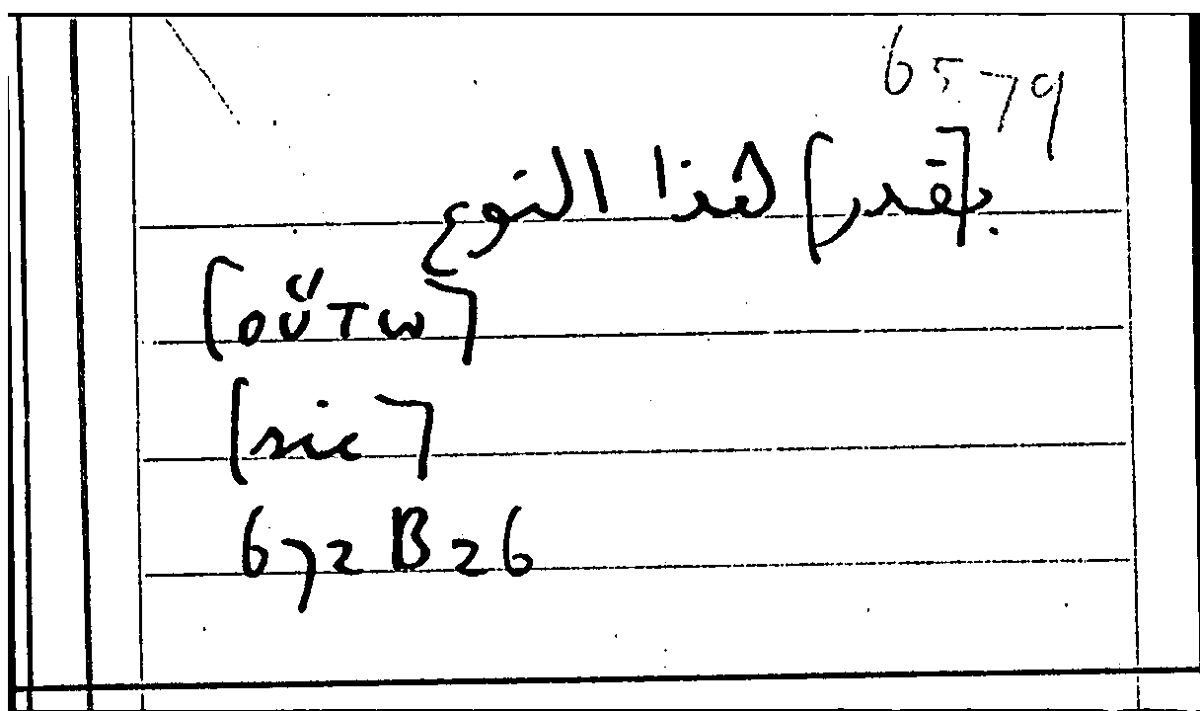 6579
[بقدر] هذا النوع
[οὕτω]
[sic]
672 B 26